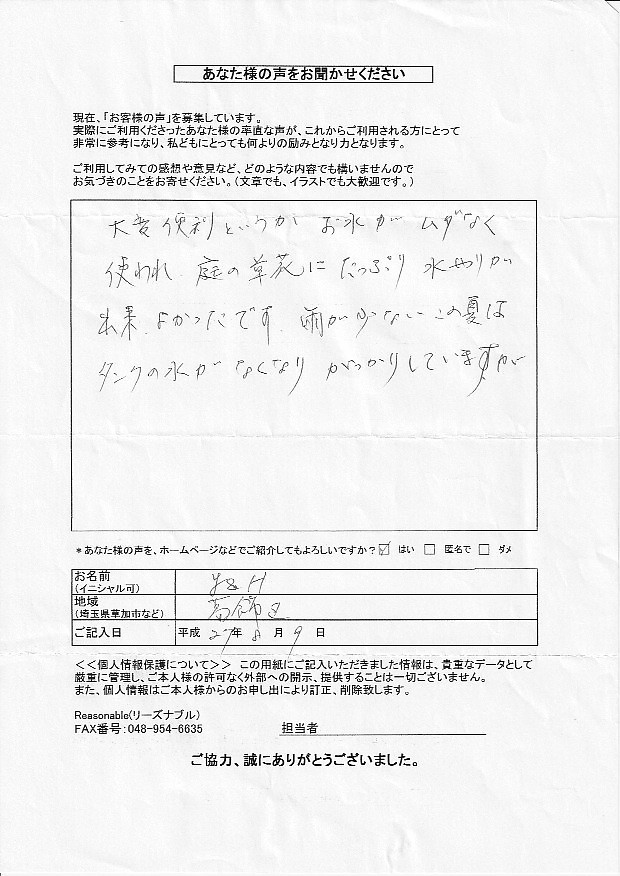 あなた様の声をお聞かせください
現在、「お客様の声」を募集しています。
実際にご利用くださったあなた様の率直な声が、これからご利用される方にとって
非常に参考になり、私どもにとっても何よりの励みとなり力となります。
ご利用してみての感想や意見など、どのような内容でも構いませんので
お気づきのことをお寄せください。(文章でも、イラストでも大歓迎です。)
大変便利というか お水が ムダなく
使われ、庭の草花に たっぷり 水やりが
出来、よかったです。雨が少ない この夏は
タンクの水が なくなり がっかりしていますが
*あなた様の声を、ホームページなどでご紹介してもよろしいですか? ☑ はい □ 匿名で □ ダメ
お名前
(イニシャル可) H
地域 葛飾区
(埼玉県草加市など)
ご記入日 平成 27年 8 月 9 日
<<個人情報保護について>> この用紙にご記入いただきました情報は、貴重なデータとして
厳重に管理し、ご本人様の許可なく外部への開示、提供することは一切ございません。
また、個人情報はご本人様からのお申し出により訂正、削除致します。
Reasonable(リーズナブル)
FAX番号:048-954-6635 担当者
ご協力、誠にありがとうございました。